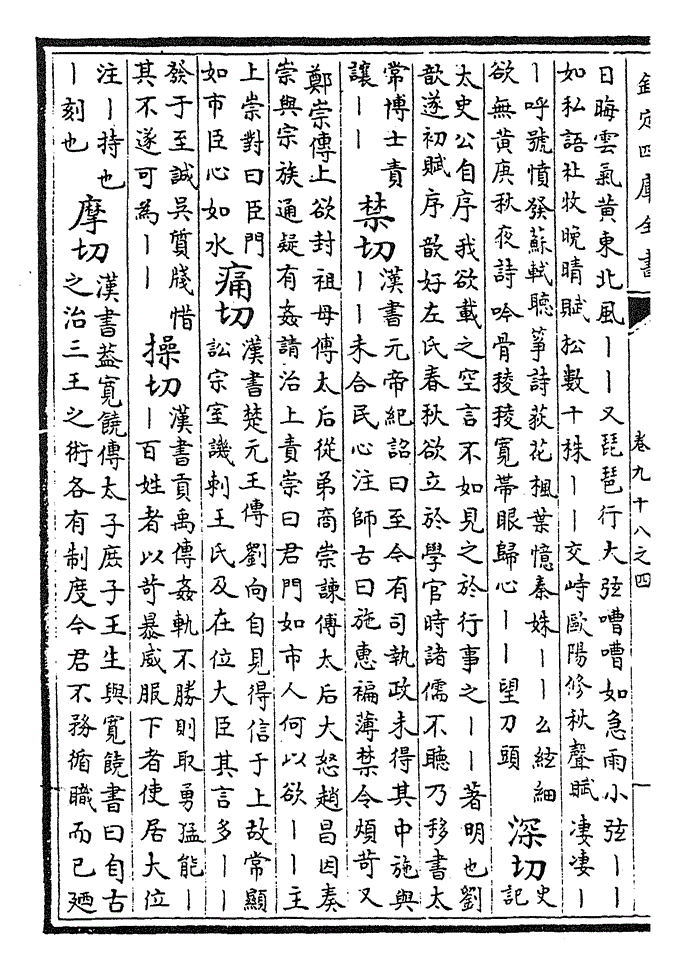 欽定四庫全書
卷九十八之四
日晦雲氣黄東北風丨丨又琵琶行大弦嘈嘈如急雨小弦丨丨
如私語杜牧晚晴賦松數千株丨丨交峙歐陽修秋聲賦凄凄丨
丨呼號憤發蘇軾聽箏詩荻花楓葉憶秦姝丨丨么絃細
欲無黄庚秋夜詩吟骨稜稜寛帶眼歸心丨丨望刀頭
深切
史
記
太史公自序我欲載之空言不如見之於行事之丨丨著明也劉
歆遂初賦序歆好左氏春秋欲立於學官時諸儒不聽乃移書太
常博士責
讓丨丨
禁切
漢書元帝紀詔曰至今有司執政未得其中施與
丨丨未合民心注師古曰施惠褊薄禁令煩苛又
鄭崇傳上欲封祖母傅太后從弟商崇諫傅太后大怒趙昌因奏
崇與宗族通疑有姦請治上責崇曰君門如市人何以欲丨丨主
上崇對曰臣門
如市臣心如水
痛切
漢書楚元王傳劉向自見得信于上故常顯
訟宗室譏刺王氏及在位大臣其言多丨丨
發于至誠吳質牋惜
其不遂可為丨丨
操切
漢書貢禹傳姦軌不勝則取勇猛能丨
丨百姓者以苛暴威服下者使居大位
注丨持也
丨刻也
摩切
漢書葢寛饒傳太子庶子王生與寛饒書曰自古
之治三王之術各有制度今君不務循職而已廼